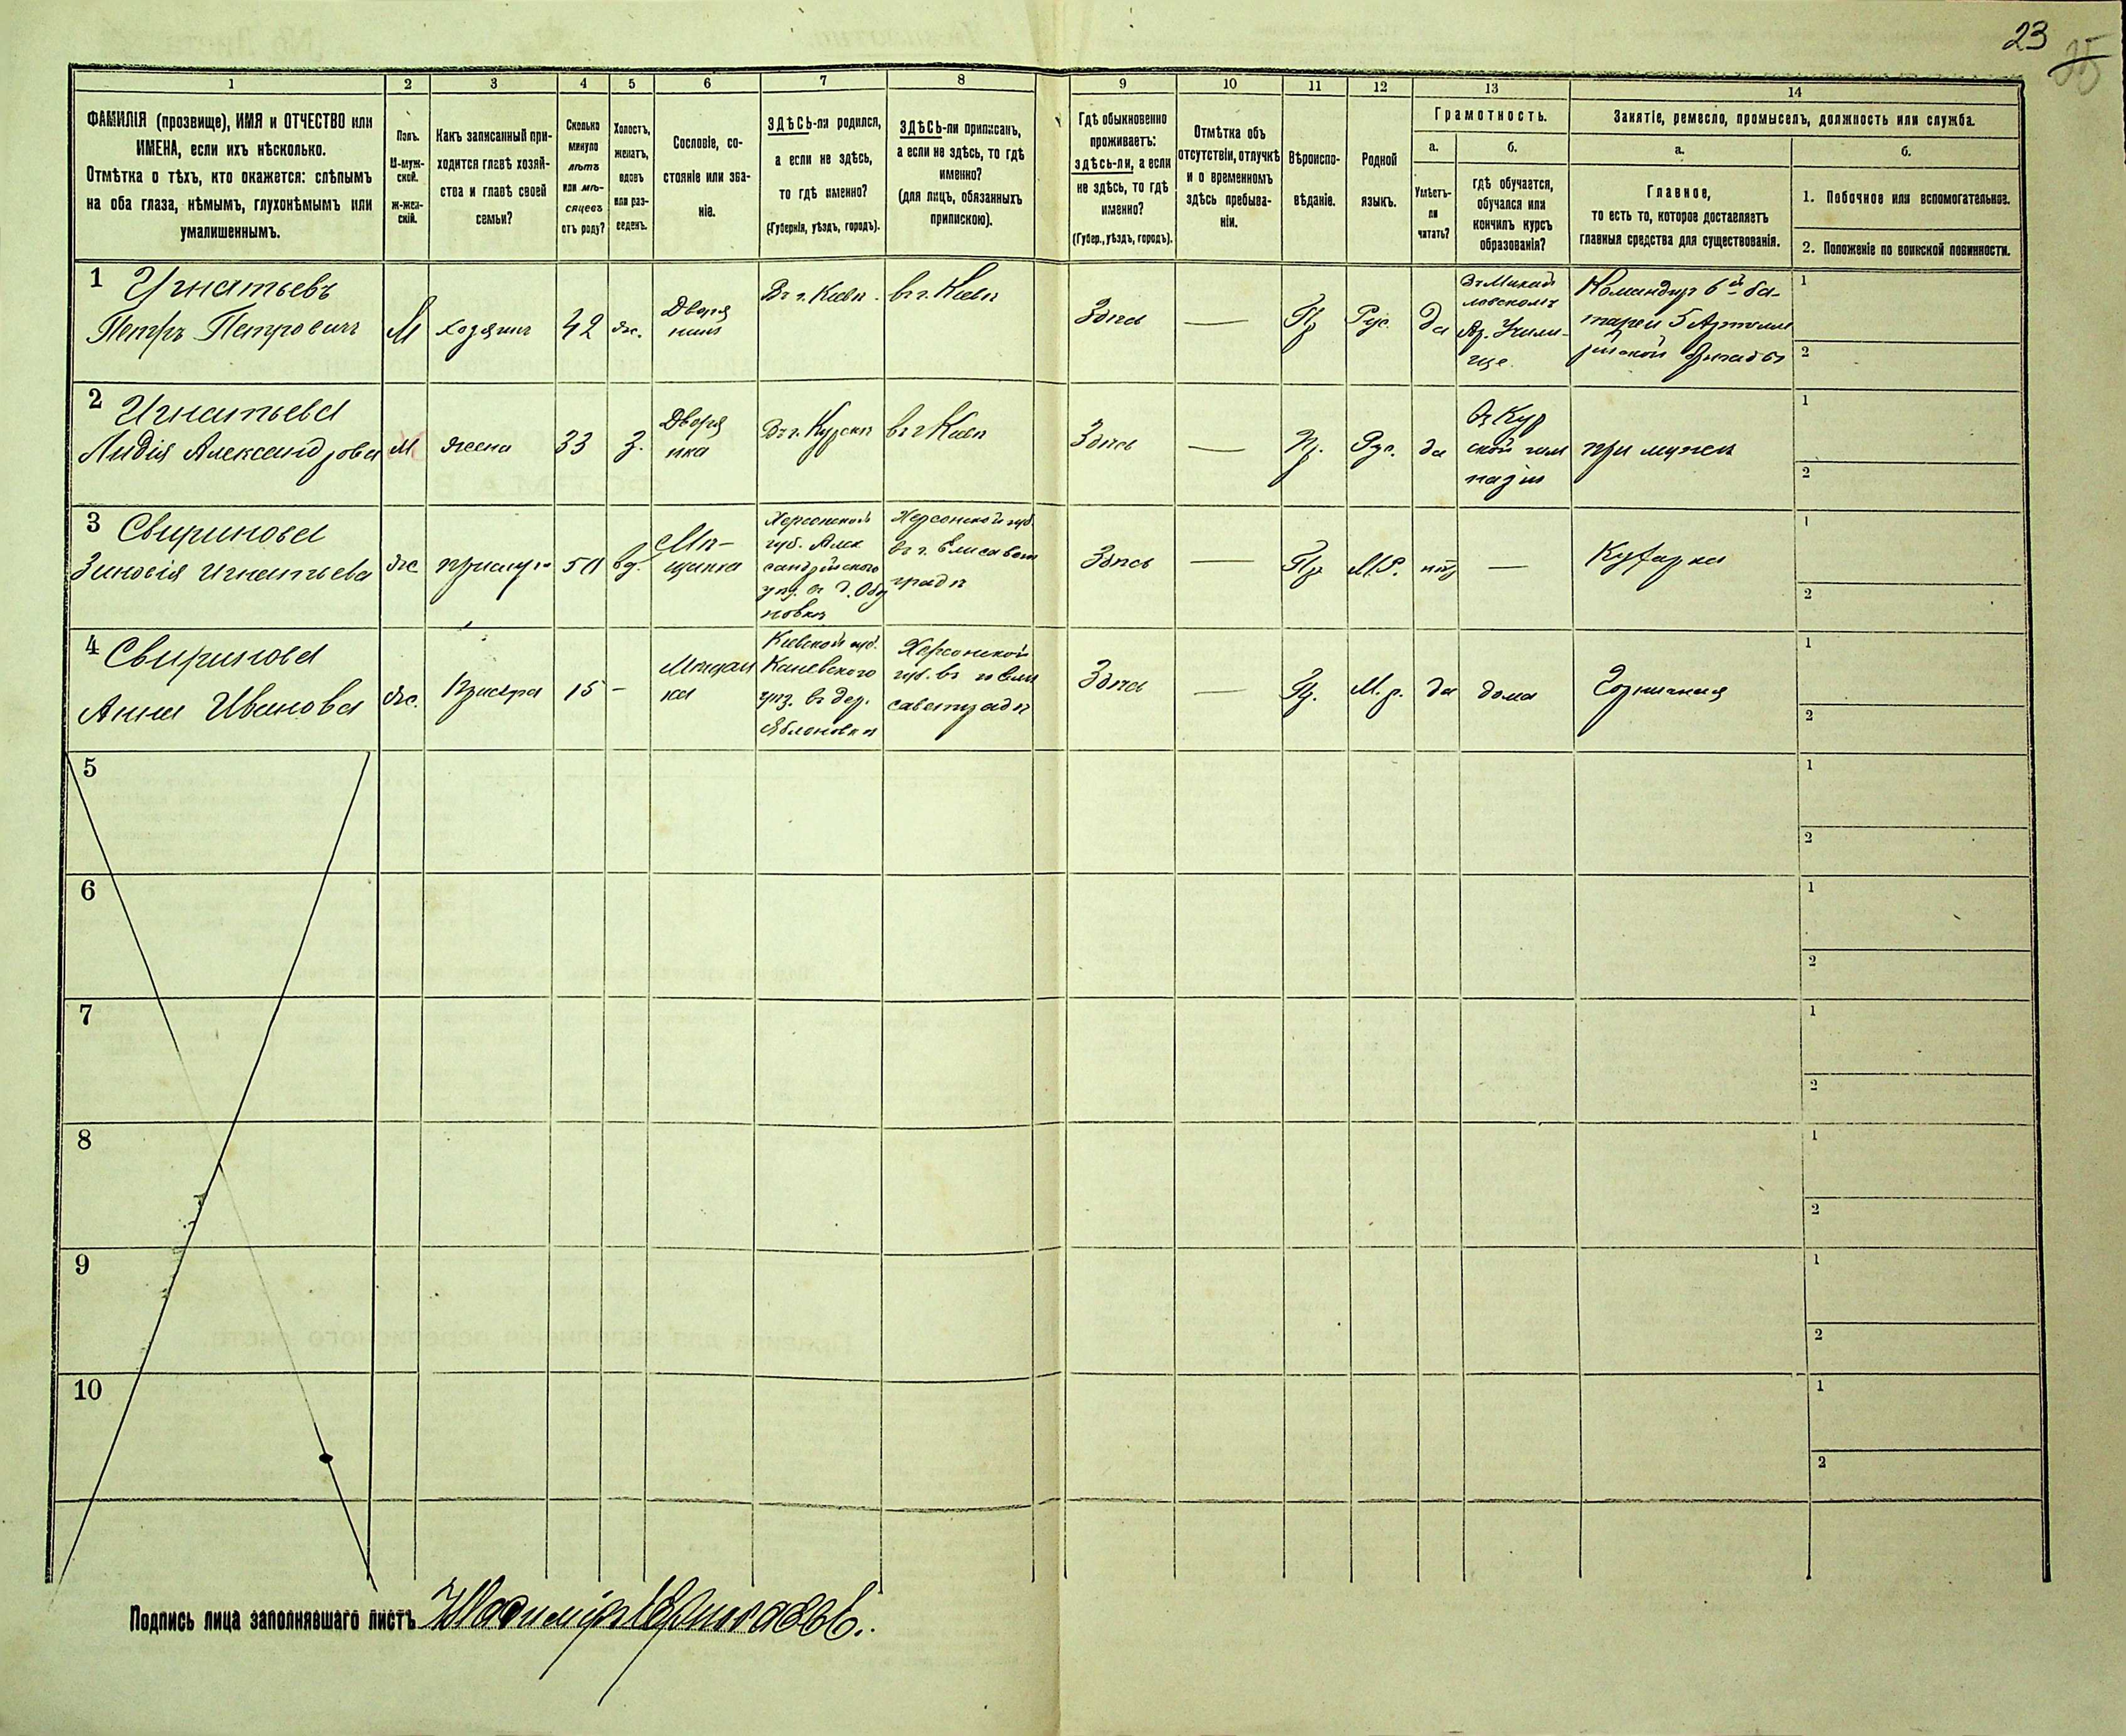 23
25
1 2 3 4 5 6 7 8 9 10 11 12 13 14
ФАМИЛІЯ (прозвище), ИМЯ и ОТЧЕСТВО или
ИМЕНА, если ихъ нѣсколько.
Отмѣтка о тѣхъ, кто окажется: слѣпымъ
на оба глаза, нѣмымъ, глухонѣмымъ или
умалишеннымъ.
Полъ.
М-муж-
ской.
Ж-жен-
скій.
Какъ записанный при-
ходится главѣ хозяй-
ства и главѣ своей
семьи?
Сколько
минуло
лѣтъ
или мѣ-
сяцевъ
отъ роду?
Холостъ,
женатъ,
вдовъ
или раз-
веденъ.
Сословіе, со-
стояніе или зва-
ніе.
ЗДѢСЬ-ли родился,
а если не здѣсь,
то гдѣ именно?
(Губернія, уѣздъ, городъ).
ЗДѢСЬ-ли приписанъ,
а если не здѣсь, то гдѣ
именно?
(для лицъ, обязанныхъ
припискою).
Гдѣ обыкновенно
проживаетъ:
здѣсь-ли, а если
не здѣсь, то гдѣ
именно?
(Губер., уѣздъ, городъ).
Отмѣтка объ
отсутствіи, отлучкѣ
и о временномъ
здѣсь пребыва-
ніи.
Вѣроиспо-
вѣданіе.
Родной
языкъ.
Грамотность.
а.
Умѣетъ-
ли
читать?
б.
гдѣ обучается,
обучался или
кончилъ курсъ
образованія?
Занятіе, ремесло, промыселъ, должность или служба.
а.
Главное,
то есть то, которое доставляетъ
главныя средства для существованія.
б.
1. Побочное или вспомогательное.
2. Положеніе по воинской повинности.
1 Игнатьевъ
Петръ Петровичъ
М
хозяинъ
42
ж.
Дворя
нинъ
Въ г. Кіевѣ.
въ г. Кіевѣ
Здѣсь
—
Пр
Рус.
да
Въ Михай
ловскомъ
Ар. Учили-
ще.
Командиръ 6й ба-
тареи 5 Артилле
рійской бригады
1
2
2 Игнатьева
Лидія Александрова
М
жена
33
З.
Дворя
нка
Въ г. Курскѣ
въ г Кіевѣ
Здѣсь
—
Пр.
Рус.
да
Въ Кур
ской гим
назіи
при мужѣ
1
2
3 Свиринова
Зиновія Игнатьева
ж
прислуга
50
вд.
Мѣ-
щанка
Херсонской
губ. Алек
сандрійскаго
уѣз. въ
новкѣ
Херсонской губ.
въ г. Елисавет
градѣ
Здѣсь
—
Пр
М.Р.
нѣтъ
—
Кухарка
1
2
4 Свиринова
Анна Иванова
ж.
15
-
Мѣщан
ка
Кіевской губ.
Каневскаго
уѣз. въ дер.
Яблоновкѣ
Херсонской
губ. въ г. Ели
саветградѣ
Здѣсь
—
Пр.
М. р.
да
дома
Горничная
1
2
5
1
2
6
1
2
7
1
2
8
1
2
9
1
2
10
1
2
Подпись лица заполнявшаго листъ